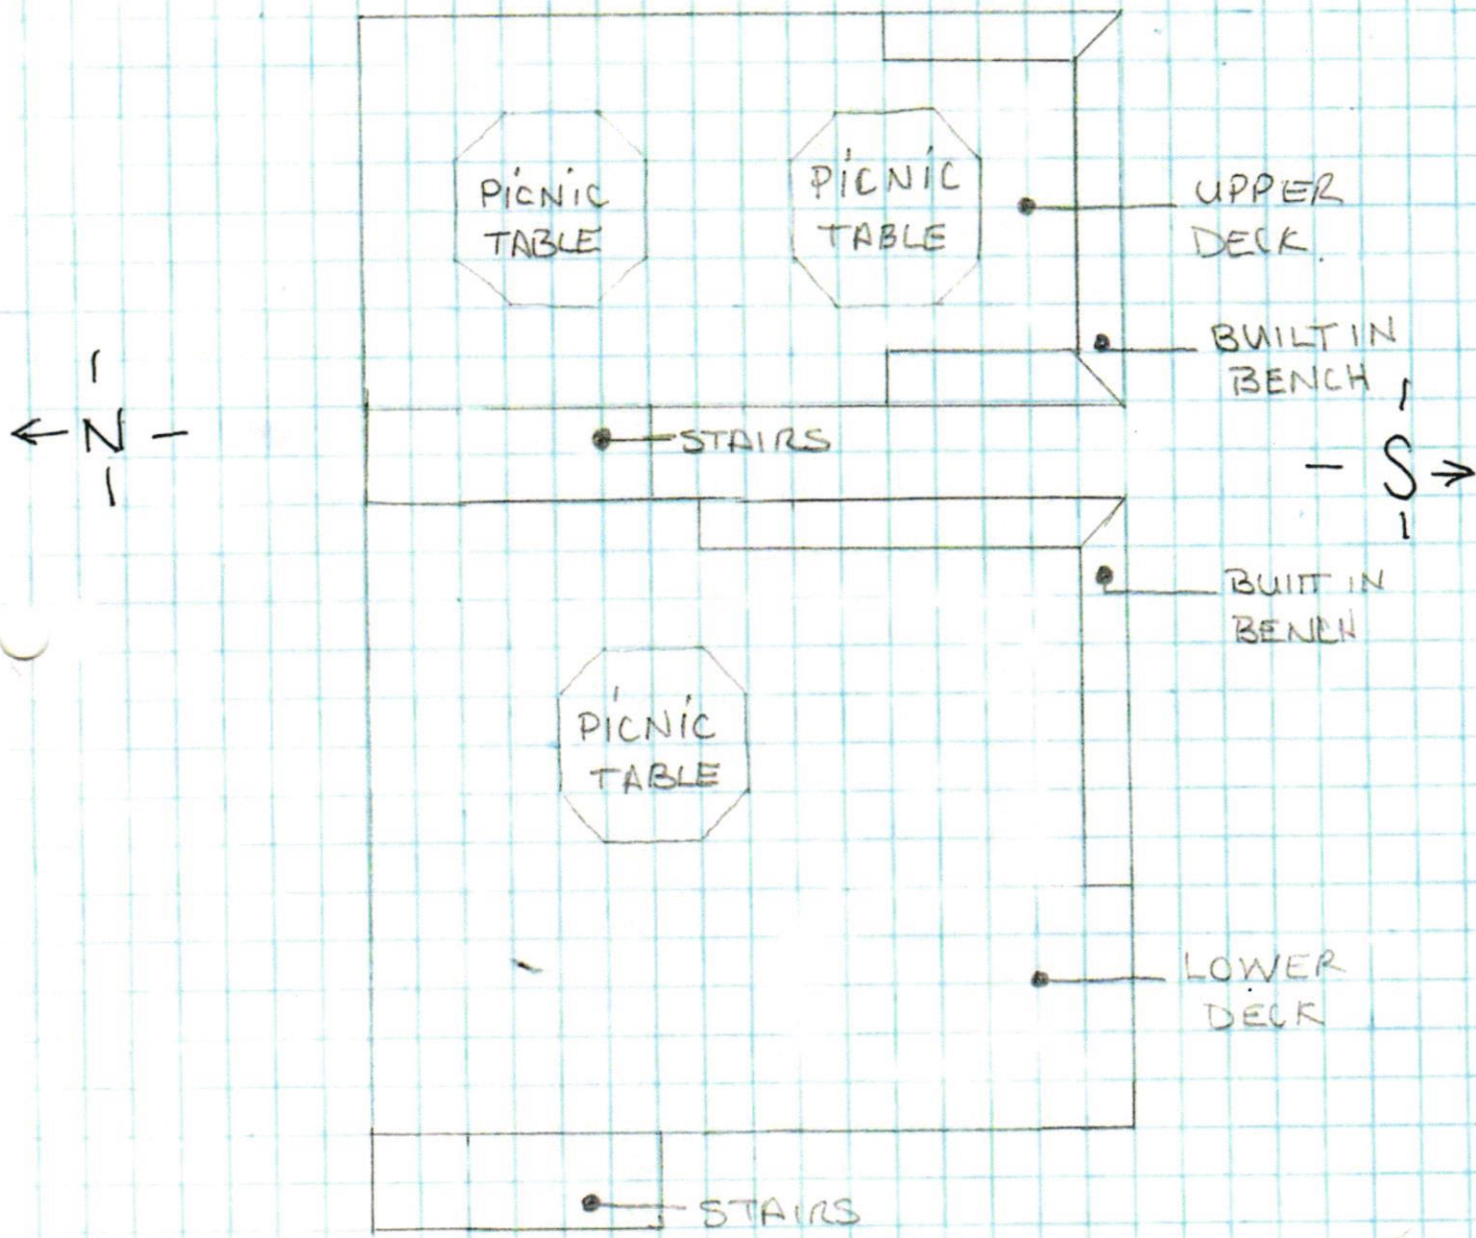 PICNIC
TABLE
PICNIC
TABLE
UPPER
DECK.
BUILT IN
BENCH
← N –
STAIRS
– S →
BUILT IN
BENCH
PICNIC
TABLE
LOWER
DECK
STAIRS